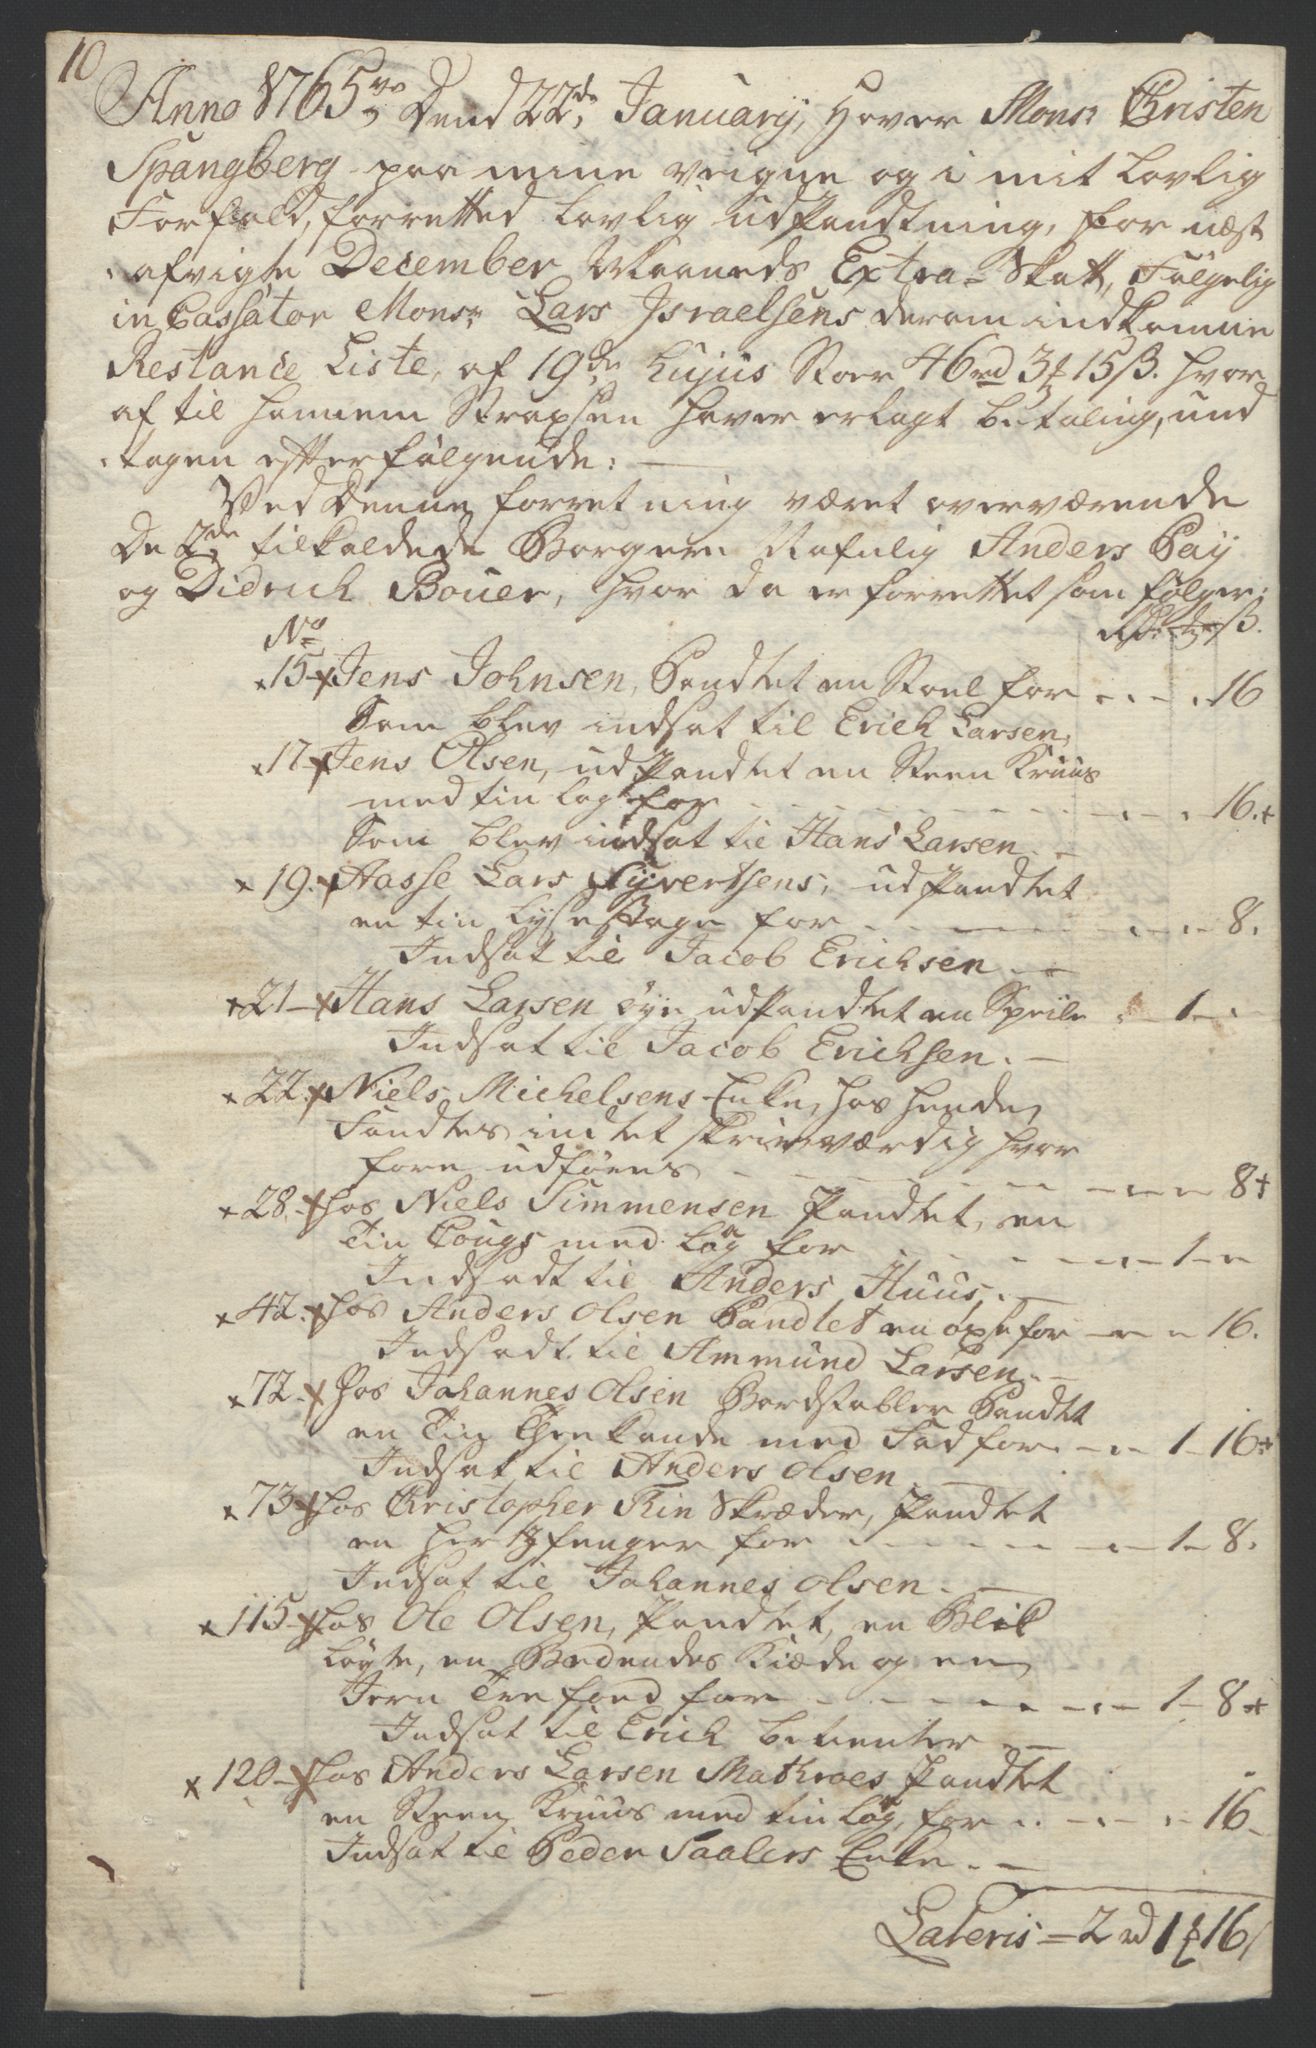 10
Anno 1765 vo Dend 22de January, Haver Monsr Christen
Spangberg paa mine veigne og i mit Lovlig
Forfald, forretted Lovlig udPandtning, for næst
afvigte December Maaneds Extra-Skatt, Følgelig
in Cassator Monsr Lars Israelsens derom indkomne
Restance Liste, af 19de hujus Stoer 46 rd 3 ₰ 15 ß. hvor
af til hannem Strax sen haver erlagt betaling, und
tagen efterfølgende:
Ved Denne forretning været overværende
De 2de tilkaldede Borgere Nafnlig Anders Pay
og Didrich Bouer, hvor da er forrettet som følger:
No
Rdr ₰ ß.
15 Jens Johnsen, Pandtet en Stoel for - - - 16
Som blev indsat til Erich Larsen,
17 Jens Olsen, udPandtet en Steen Kruus
med tin lag for - - - 16.
Som blev indsat til Hans Larsen.
19. Aasse Lars Syvertsens, udPandtet
en tin Lysestage for - - - 8.
Indsat til Jacob Erichsen
21 Hans Larsen øye udPandtet en Speile - 1 -
Indsat til Jacob Erichsen.
22. Niels Michelsens Enke, hos hende,
Fandtes intet skriveværdig hvor
fore udføres - - - 8
28. hos Niels Simmensen Pandtet, en
Tin Cougs med Lag for - - - 1 -
Indsadt til Anders Huus.
42. hos Anders Olsen Pandtet en øxe for - - 16.
Indsadt til Ammund Larsen.
72. hos Johannes Olsen Bordstabler Pandtet
en Tin Theekande med Fad for - - 1 - 16
Indsat til Anders Olsen
73 hos Christopher Rin Skræder, Pandtet
en for - - - 1 - 8.
Indsat til Johannes Olsen.
115 hos Ole Olsen, Pandtet, en Blik
Løgte, en Kiæde og en
Jern Trefoed for - - - 1 - 8
Indsat til Erich betienter
120 hos Anders Larsen Mathroes Pandtet
en Steen Kruus med tin Lag, for - - - 16
Indsat til Peder Saalers Enke.
Lateris = 2 rd 1 ₰ 16